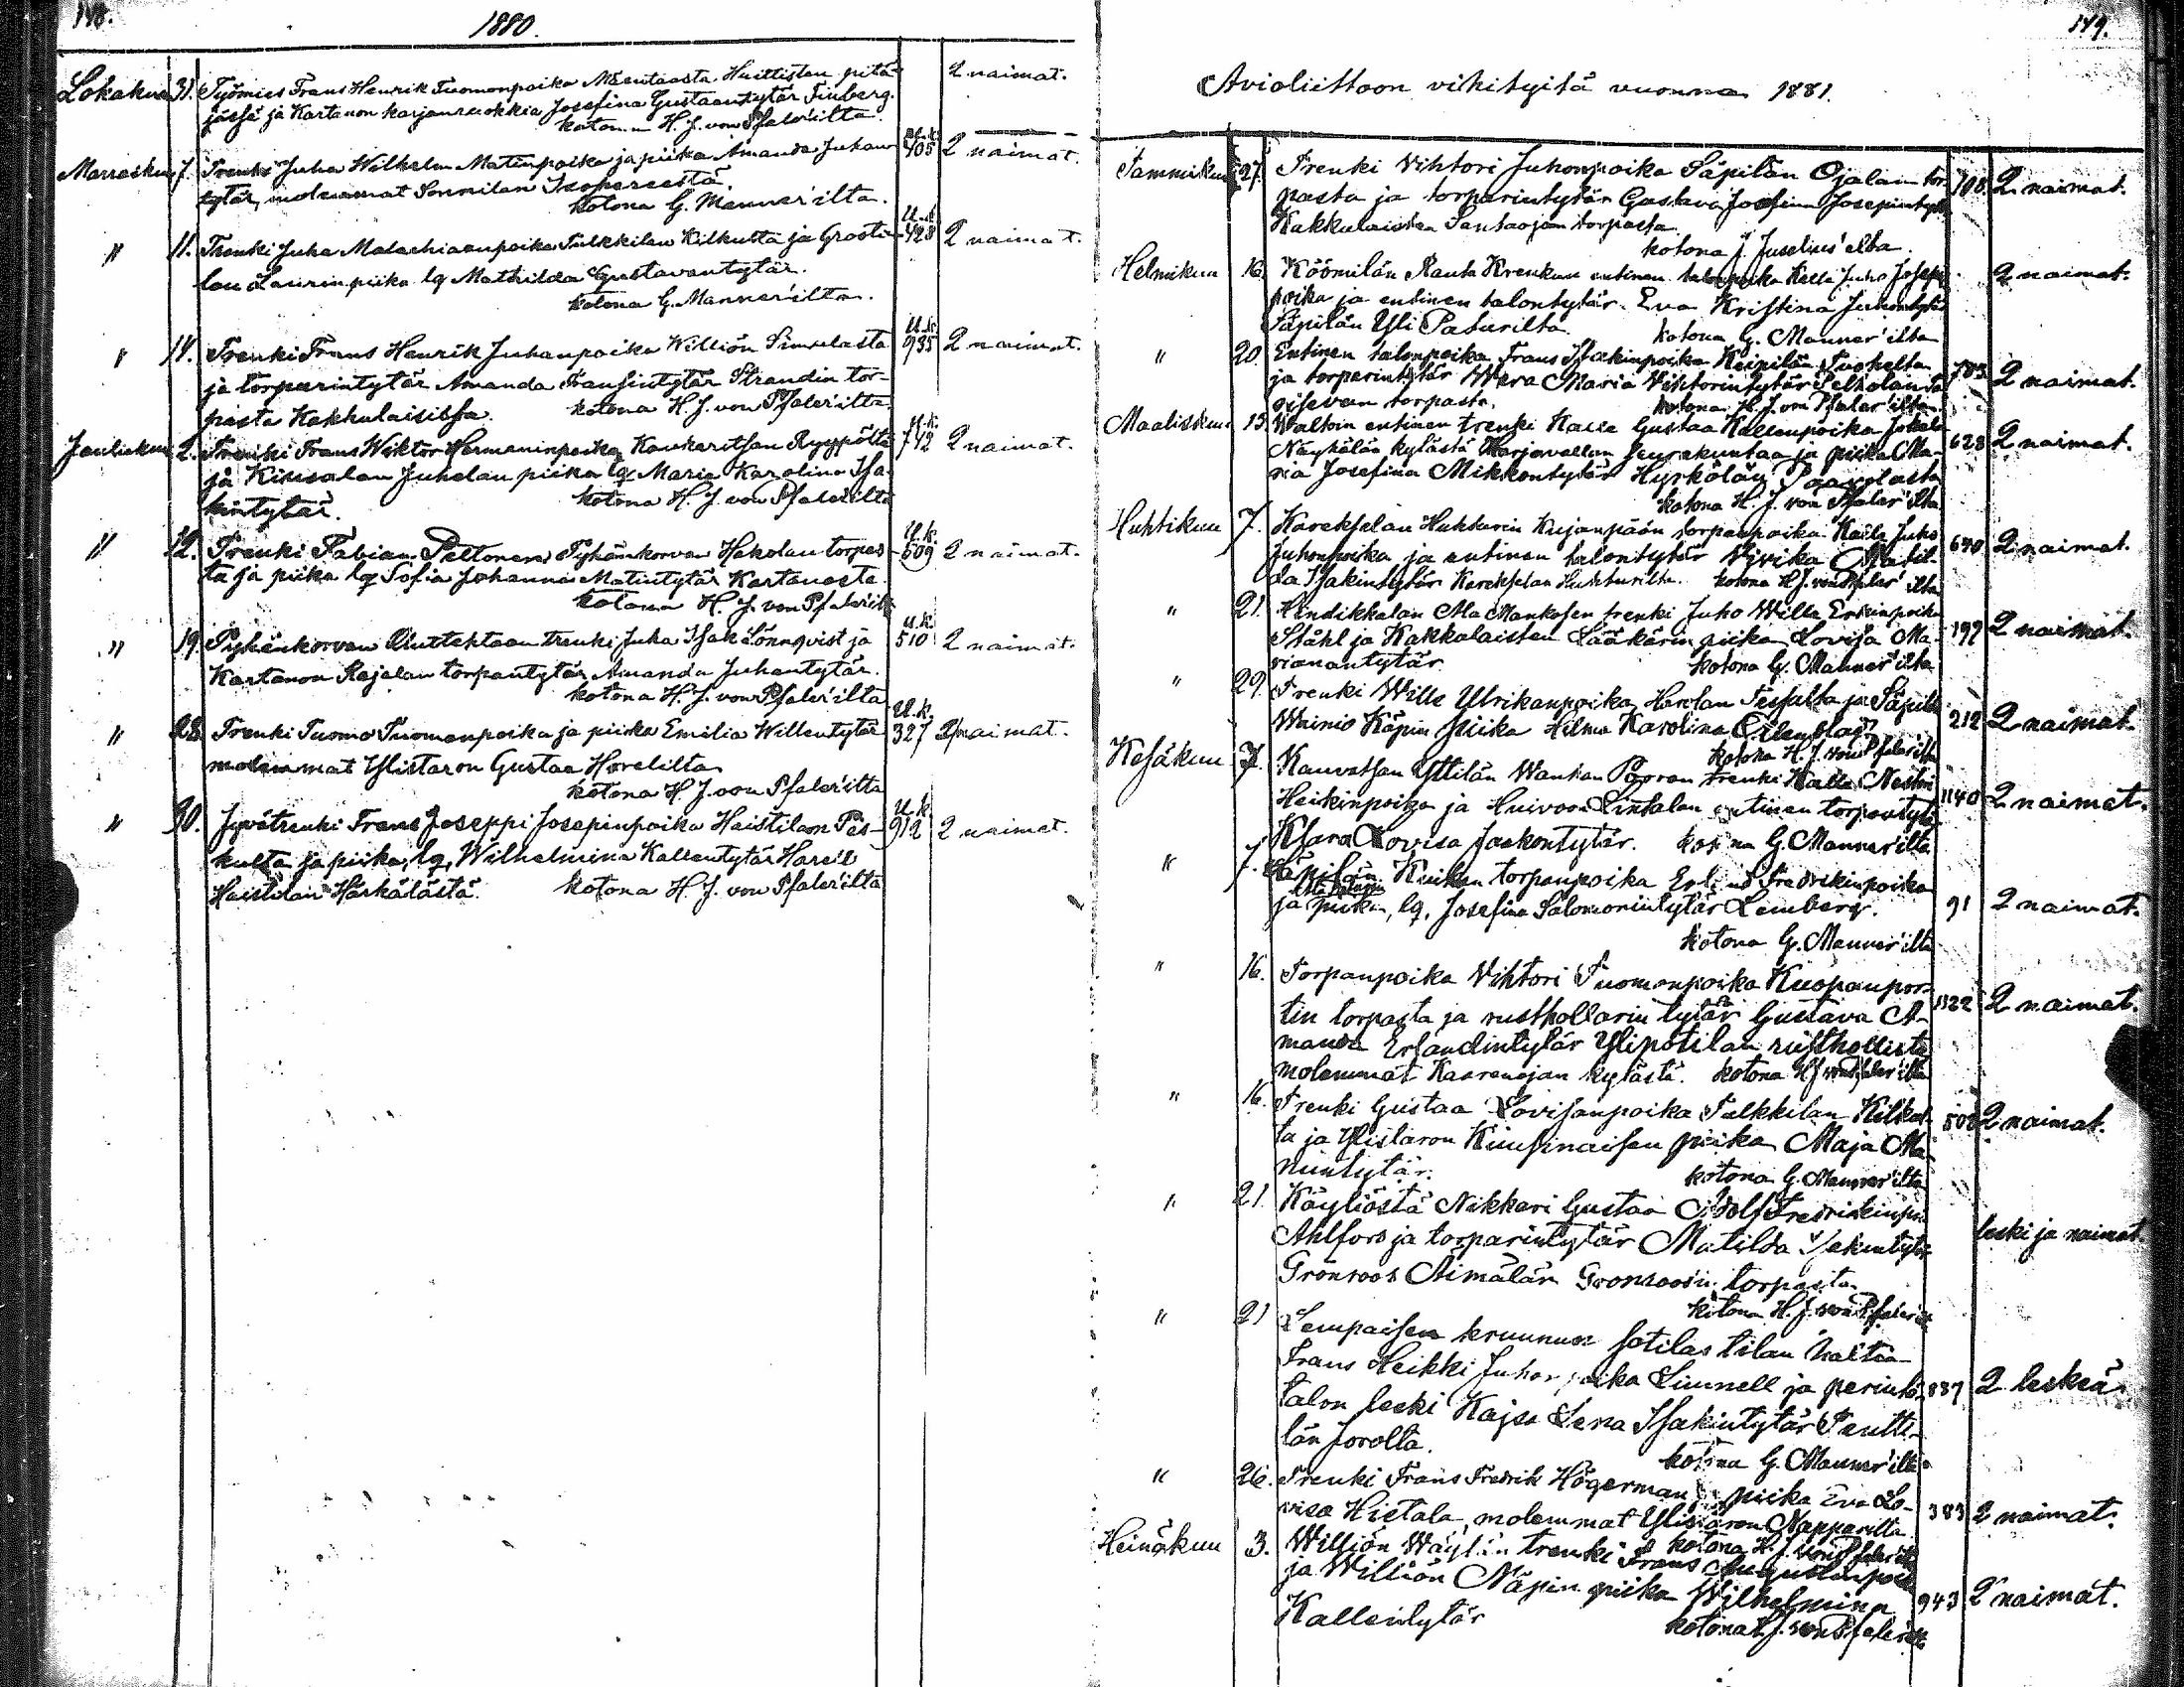 148.
1880.
Lokakuu 31. Työmies Frans Henrik Tuomonpoika Huittisten pitä- 2 naimat.
jässä ja Kartanon karjanruokkia Josefina Gustaantytär Finberg.
H. J. von Pfaler'ilta.
Marraskuu 7. Trenki Juha Wilhelm Matinpoika ja piika Amanda Juhan- U.k. 405 2 naimat.
tytär, molemmat Sonnilan Isopereestä.
kotona G. Manner'ilta.
" 11. Trenki Juha Malachiaanpoika Tulkkilan Kilkulta ja Grosti- U.k. 428 2 naimat.
lan Laurin piika lq Mathilda Gustavantytär.
kotona G. Manner'ilta.
" 14. Trenki Frans Henrik Juhanpoika Williön Simulasta U.k. 935 2 naimat.
ja torparintytär Amanda Fransintytär Strandin tor-
pasta Kakkulaisissa. kotona H. J. von Pfaler'ilta.
Jouluakuu 2. Trenki Frans Wiktor Hermaninpoika Kaukaritsan Ryypöltä U.k. 742 2 naimat.
ja Kiusalan Juhelan piika lq Maria Karolina Isa-
kintytär. kotona H. J. von Pfaler'ilta
" 12. Trenki Fabian Peltonen Pyhänkorvan Hakolan torpas- U.k. 509 2 naimat.
ta ja piika lq Sofia Johanna Matintytär Kartanosta.
kotona H. J. von Pfaler'ilt
" 19. Pyhänkorvan trenki Juha Isak Lönnqvist ja U.k. 510 2 naimat.
Kartanon Rajalan torpantytär Amanda Juhantytär.
kotona H. J. von Pfaler'ilta
" 28. Trenki Tuomo Tuomanpoika ja piika Emilia Willentytär U.k. 327 2 naimat.
molemmat Ylistaron Gustaa Horelilta
kotona H. J. von Pfaler'ilta
" 30. Jyvätrenki Frans Joseppi Josepinpoika Haistilan Pas- U.k. 912 2 naimat.
kulta ja piika, lq, Wilhelmina Kallentytär
Haistilan Härkälästä. kotona H. J. von Pfaler'ilta
149.
Avioliittoon vihityitä vuonna 1881.
Tammikuu 27. Trenki Vihtori Juhonpoika Säpilän Ojalan tor- 708 2 naimat.
pasta ja torparintytär Gustava Josefina Josepintytär
Kakkulaisten Santaojan torpasta.
kotona J. Juselius'elta.
Helmikuu 16. Köömilän Rauta Krenkun entinen talonpoika Kalle Juho Josepin- 2 naimat.
poika ja entinen talontytär Eva Kristina Juhontytär
Säpilän Yli Paturilta. kotona G. Manner'ilta
" 20. Entinen talonpoika Frans Isakinpoika Keipilän Tuokolta 783 2 naimat.
ja torparintytär Wera Maria Vihtorintytär
torpasta. kotona H. J. von Pfaler'ilta
Maaliskuu 13. entinen trenki Kalle Gustaa Kallenpoika 628 2 naimat.
kylästä seurakuntaa ja piika Ma-
ria Josefina Mikkontytär Hyrkölän Paavolasta
kotona H. J. von Pfaler'ilta
Huhtikuu 7. Kareksélan Huhturin Kujanpään torpanpoika Kalle Juho 640 2 naimat.
Juhonpoika ja entinen talontytär Vivika Matil-
da Isakintytär Kareksélan Huhturilta. kotona H. J. von Pfaler'ilta
" 21. Hindikkalan Ala Mankosen trenki Juho Wille Erkinpoika 199 2 naimat.
Ståhl ja Kakkalaisten Lääkärin piika Lovisa Ma-
rianantytär kotona G. Manner'ilta
" 29. Trenki Wille Ulrikanpoika ja Säpilän 212 2 naimat.
piika Hilma Karolina
kotona H. J. von Pfaler'ilta
Kesäkuu 7. Kauvatsan Yttilän Wanhan Paavon trenki Kalle Nestori 1140 2 naimat.
Heikinpoika ja Huivoon Lintalan entinen torpantytär
Klara Lovisa Jaakontytär. kotona G. Manner'ilta
" 7. Säpilän torpanpoika Erland Fredrikinpoika
ja piika, lq, Josefina Salomonintytär Lemberg. 91 2 naimat.
kotona G. Manner'ilta
" 16. Torpanpoika Vihtori Tuomonpoika Kuopanpor- 1322 2 naimat.
tin torpasta ja rusthollarin tytär Gustava A-
manda Erlandintytär Ylipotilan rusthollista
molemmat Kaarenojan kylästä. kotona H. J. von Pfaler'ilta
" 16. Trenki Gustaa Lovisanpoika Tulkkilan Kilkul- 502 2 naimat.
ta ja Ylistaron Kuusinaisen piika Maja Ma-
nuntytär. kotona G. Manner'ilta
" 21. Käyliöstä Nikkari Gustaa Adolf Fredrikinp. leski ja naimat.
Ahlfors ja torparintytär Matilda
Grönroos Äimälän Grönroosin torpasta
kotona H. J. von Pfaler'ilta
" 21 Lempaisen kruunun sotilas tilan haltia
Frans Heikki Juhonpoika Linnell ja perintö- 837 2 leskeä
talon leski Kajsa Lena Isakintytär Pentti-
län Jorolta.
kotona G. Manner'ilta
" 26. Trenki Frans Fredrik Högerman ja piika Eva Lo- 383 2 naimat.
visa Hietala, molemmat Ylistaron Napparilta
kotona H. J. von Pfaler'ilta
Heinäkuu 3. Williön trenki Frans Augustinpoika
ja Williön Näpin piika Wilhelmina 943 2 naimat.
Kallentytär kotona H. J. von Pfaler'ilta